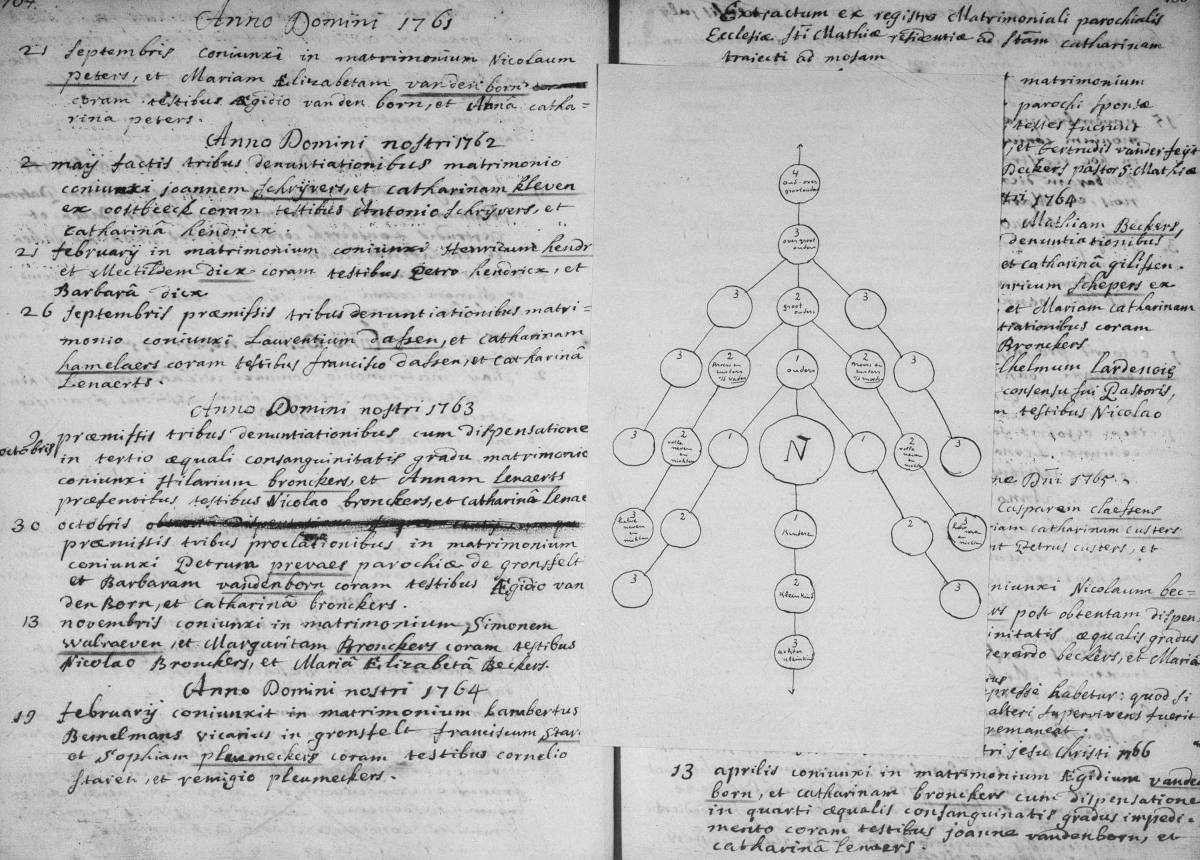 Anno Domini 1761
21 septembris coniunxi in matrimonium Nicolaum
peters, et Mariam Ælizabetam vanden born
coram testibus Ægidio vanden born, et Annâ catha=
rina peters.
Anno Domini nostri 1762
2 maij factis tribus denuntiationibus matrimonio
coniunxi joannem schrijvers, et catharinam kleven
ex oostbeeck coram testibus Antonio schrijvers, et
catharinâ hendricx
21 februarij in matrimonium coniunxi Henricum hendr
et Mectildem dicx coram testibus Petro hendricx, et
Barbarâ dicx
26 septembris præmissis tribus denuntiationibus matri=
monio coniunxi Laurentium dassen, et catharinam
hamelaers coram testibus francisco dassen, et catharinâ
Lenaerts.
Anno Domini nostri 1763
2 octobris præmissis tribus denuntiationibus cum dispensatione
in tertio æquali consanguinitatis gradu matrimonio
coniunxi Hilarium bronckers, et Annam Lenaerts
præsentibus testibus Nicolao bronckers, et catharinâ lenae
30 octobris
præmissis tribus proclationibus in matrimonium
coniunxi Petrum prevaes parochiæ de gronsselt
et Barbaram vandenborn coram testibus Ægidio van
den Born, et catharinâ bronckers.
13 novembris coniunxi in matrimonium Simonem
walraeven, et Margaritam Bronckers coram testibus
Nicolao Bronckers, et Mariâ Ælizabetâ Beckers.
Anno Domini nostri 1764
19 februarij coniunxit in matrimonium Lambertus
Bemelmans vicarius in gronsfelt franciscum star
et Sophiam pleumeckers coram testibus cornelio
staien, et remigio pleumeckers.
Extractum ex registro Matrimoniali parochialis
Ecclesiæ sti Mathiæ ad stam catharinam
traiecti ad mosam
matrimonium
parochi sponsæ
testes fuerunt
et Gertrudis vanderfeyt
Beckers pastor S. Mathiæ
tri 1764
Mathiam Beckers,
denuntiationibus
et catharinâ gilissen.
nricum schepers ex
et Mariam catharinam
tiationibus coram
Bronckers
lhelmum Lardenoie
consensu sui Pastoris,
testibus Nicolao
ne Dni 1765
Casparem claessens
iam catharinam custers
nt Petrus custers, et
niunxi Nicolaum bec=
post obtentam dispen=
initatis æqualis gradus
gerardo beckers, et Mariâ
presse habetur: quod si
alteri supervivens fuerit
remaneat.
tri jesu Christi 1766
13 aprilis coniunxi in matrimonium Ægidium vande
born, et catharinam bronckers cum dispensatione
in quarti æqualis consanguinatis gradus impedi=
mento coram testibus joanne vandenborn, et
catharinâ lenaers.
4
oud-over
grootouders
3
over groot
ouders
3
2
groot
ouders
3
3
2
ooms en
tantes
1
ouders
2
ooms en
tantes
3
3
2
volle
neven
en
nichten
1
N
1
2
volle
neven
en
nichten
3
3
neven
en
nichten
2
1
kinderen
2
neven
en
nichten
3
2
kleinkind
3
3
achter
kleinkind